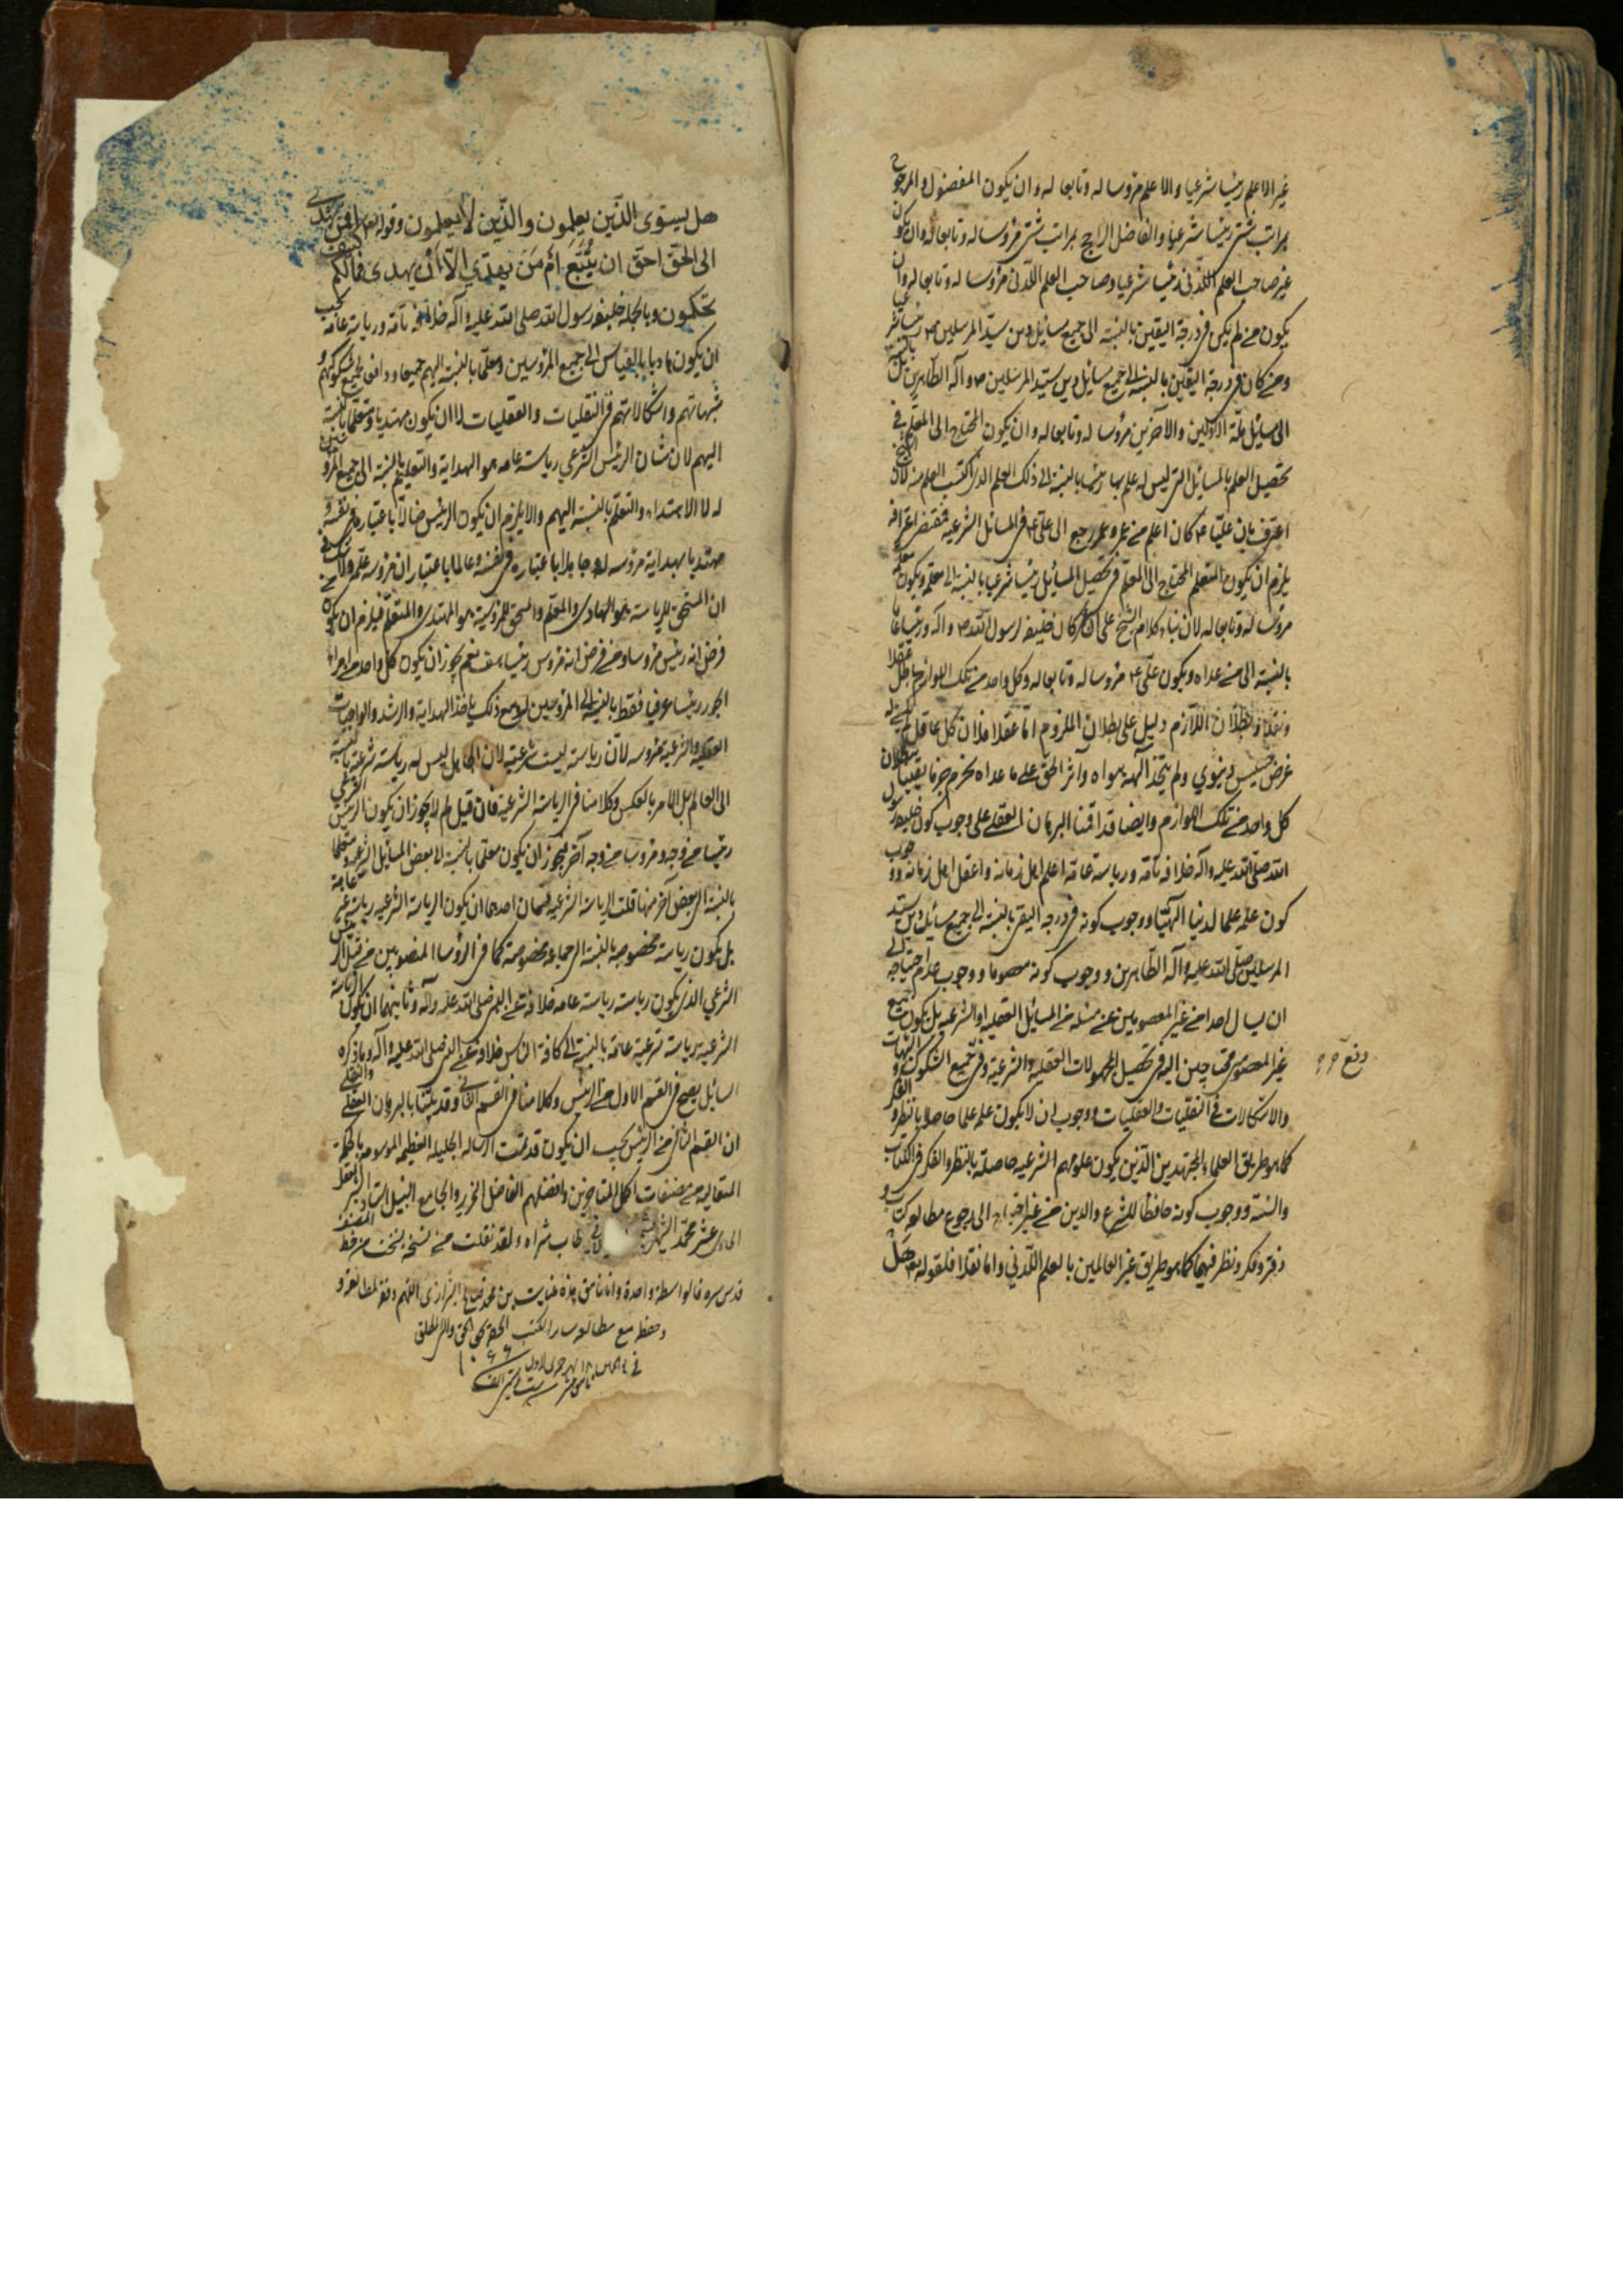 غير الاعلم رئيسا شرعيا والاعلم مرؤسا له وتابعا له وان يكون المفضول والمرجوح
بمراتب شتى رئيسا شرعيا والفاضل الراجح بمراتب شتى مرؤسا له وتابعا له وان يكون
غير صاحب العلم اللدني رئيسا شرعيا وصاحب العلم اللدني مرؤسا له وتابعا له وان
يكون من لم يكن في درجة اليقين بالنسبة الى جميع مسائل دين سيد المرسلين ص رئيسا شرعيا
ومن كان في درجة اليقين بالنسبة الى جميع مسائل دين سيد المرسلين ص وآله الطاهرين بل بالنسبة
الى مسائل ملة الاولين والآخرين مرؤسا له وتابعا له وان يكون المحتاج الى المعلم في
تحصيل العلم بالمسائل التي ليس له علم بها رئيسا بالنسبة الى ذلك العلم الذي اكتسب العلم منه لان
اعترف بان عليا ع كان اعلم من عمر وعمر رجع الى علي ع في المسائل الشرعية فمقتضى اعترافه
يلزم ان يكون المتعلم المحتاج الى المعلم في تحصيل المسائل رئيسا شرعيا بالنسبة الى معلمه ويكون معلمه
مرؤسا له وتابعا له لان بناء كلام الشيخ على ان كان خليفة لرسول الله ص وآله ورئيسا عاما
بالنسبة الى من عداه ويكون علي ع مرؤسا له وتابعا له وكل واحد من تلك اللوازم باطل عقلا
ونقلا وبطلان اللازم دليل على بطلان الملزوم اما عقلا فلان كل عاقل لم يكن له
غرض خسيس دنيوي ولم يتخذ الهه هواه وآثر الحق على ما عداه يجزم جزما يقينيا ببطلان
كل واحد من تلك اللوازم وايضا قد اقمنا البرهان العقلي على وجوب كون خليفة رسول
الله صلى الله عليه وآله خلافة تامة ورياسة عامة اعلم اهل زمانه واعقل اهل زمانه ووجوب
كون علمه علما لدنيا الهيا ووجوب كونه في درجة اليقين بالنسبة الى جميع مسائل دين سيد
المرسلين صلى الله عليه وآله الطاهرين ووجوب كونه معصوما ووجوب عدم احتياجه الى
ان يسال احدا من غير المعصومين عن مسئلة من المسائل العقلية او الشرعية بل يكون جميع
غير المعصومين محتاجين اليه في تحصيل المجهولات العقلية والشرعية وفي جميع الشكوك والشبهات
دفع
والاشكالات في النقليات والعقليات ووجوب ان لا يكون علمه علما حاصلا بالنظر والفكر
كما هو طريق العلماء المجتهدين الذين يكون علومهم الشرعية حاصلة بالنظر والفكر في الكتاب
والسنة ووجوب كونه حافظا للشرع والدين من غير الى رجوع مطالعة كتاب و
دفتر وفكر ونظر فيهما كما هو طريق غير العالمين بالعلم اللدني واما نقلا فلقوله تعالى هل
هل يستوى الذين يعلمون والذين لا يعلمون وقوله تعالى افمن يهدى
الى الحق احق ان يتبع ام من يهدي الا ان يهدى فمالكم كيف
تحكمون وبالجملة خليفة رسول الله صلى الله عليه وآله خلافة تامة ورياسة عامة يجب
ان يكون هاديا بالقياس الى جميع المرؤسين ومعلما بالنسبة اليهم جميعا ودافعا لجميع شكوكهم و
شبهاتهم واشكالاتهم في النقليات والعقليات لا ان يكون مهتديا ومتعلما بالنسبة
اليهم لان شان الرئيس الشرعي رياسة عامة هو الهداية والتعليم بالنسبة الى جميع المرؤسين
له لا الاهتداء والتعلم بالنسبة اليهم والا يلزم ان يكون الرئيس ضالا باعتباره في نفسه و
مهتديا بهداية مرؤسه له وجاهلا باعتباره في نفسه وعالما باعتبار ان مرؤسه علمه ولا شك في
ان المستحق للرياسة هو الهادي والمعلم والمستحق للمرؤسية هو المهتدي والمتعلم فيلزم ان يكون من
فرض انه رئيس مرؤسا ومن فرض انه مرؤس رئيسا هف نعم يجوز ان يكون كل واحد من امراء
الجور رئيسا عرفيا فقط بالنسبة الى المرؤسين له ومع ذلك ياخذ الهداية والرشد والواجبات
العقلية والشرعية من مرؤسه لان رياسته ليست شرعية لان الجاهل ليس له رياسة شرعية بالنسبة
الى العالم بل الامر بالعكس وكلامنا في الرياسة الشرعية فان قيل لم لا يجوز ان يكون الرئيس الشرعي
رئيسا من وجه ومرؤسا من وجه آخر فيجوز ان يكون معلما بالنسبة الى بعض المسائل الشرعية ومتعلما
بالنسبة الى بعض آخر منها قلت الرياسة الشرعية قسمان احدهما ان يكون الرياسة الشرعية رياسة غير عامة
بل يكون رياسة مخصوصة بالنسبة الى جماعة مخصوصة كما في الرؤسا المنصوبين من قبل الرئيس
الشرعي الذي يكون رياسته رياسة عامة خلافة عن النبي صلى الله عليه وآله وثانيهما ان يكون الرياسة
الشرعية رياسة شرعية عامة بالنسبة الى كافة الناس خلافة عن النبي صلى الله عليه وآله وما ذكره
السائل يصح في القسم الاول من الرئيس وكلامنا في القسم الثاني وقد بينا بالبرهان العقلي والنقلي
ان القسم الثاني من الرئيس يجب ان يكون قد تمت الرسالة الجليلة العظيمة الموسومة بالحكمة
المتعالية من مصنفات اكمل المتاخرين وافضلهم الفاضل النحرير والجامع النبيل استاد البشر العقل
الحادي عشر محمد الشهير طاب ثراه ولقد نقلت من نسخة نسخت من خط المصنف
قدس سره فالواسطة واحدة وانا عنايت بن محمد الشيرازي اللهم وفقه لمطالعته و
وحفظه مع مطالعة ساير الكتب الحقة بحق الحق والمطلق
۱۰۶۶